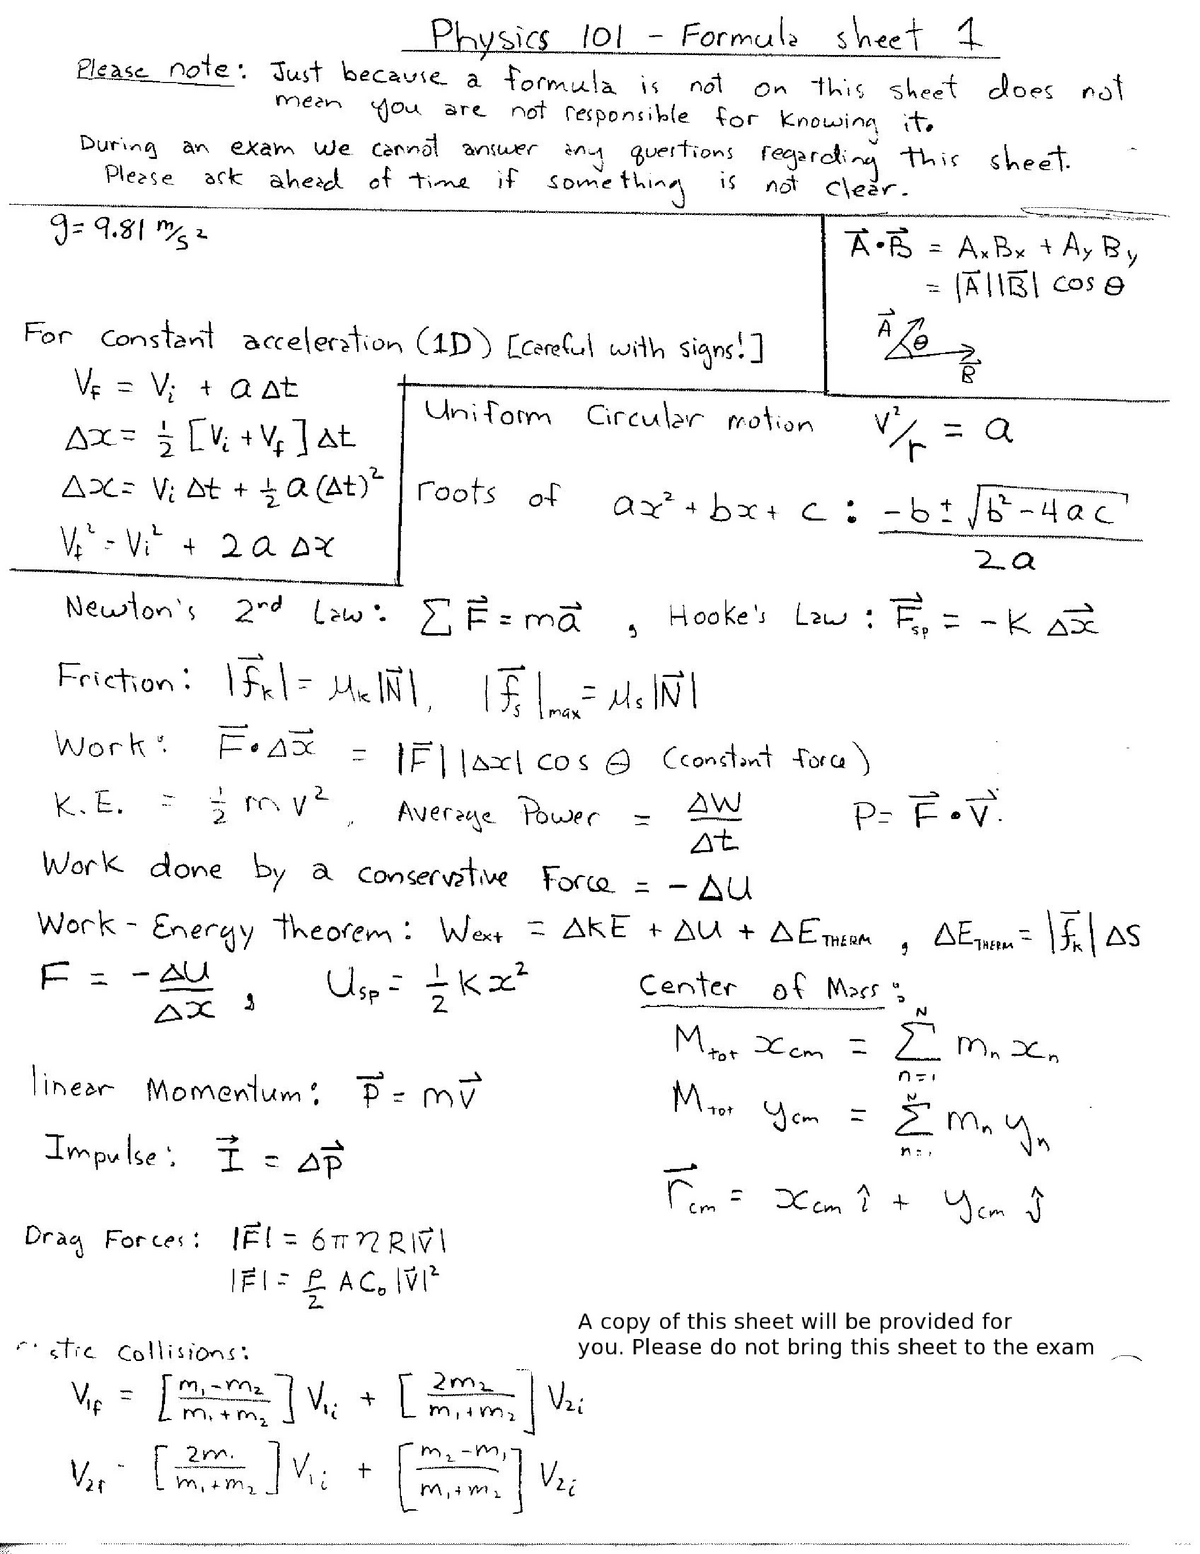 Physics 101 - Formula sheet 1
Please note: Just because a formula is not on this sheet does not
mean you are not responsible for knowing it.
During an exam we cannot answer any questions regarding this sheet.
Please ask ahead of time if something is not clear.
g = 9.81 m/s²
A⃗·B⃗ = AₓBₓ + A_y B_y
= |A⃗||B⃗| cos θ
A⃗ θ B⃗
For constant acceleration (1D) [careful with signs!]
V_f = V_i + a Δt
Δx = ½ [V_i + V_f] Δt
Δx = V_i Δt + ½ a (Δt)²
V_f² = V_i² + 2 a Δx
Uniform Circular motion v²/r = a
roots of ax² + bx + c : (-b ± √(b² - 4ac)) / 2a
Newton's 2nd Law: Σ F⃗ = ma⃗ , Hooke's Law : F⃗_sp = - k Δx⃗
Friction: |f⃗_k| = μ_k |N⃗|, |f⃗_s|_max = μ_s |N⃗|
Work: F⃗·Δx⃗ = |F⃗| |Δx| cos θ (constant force)
K.E. = ½ m v², Average Power = ΔW/Δt P = F⃗·V⃗.
Work done by a conservative Force = - ΔU
Work - Energy theorem: W_ext = ΔKE + ΔU + ΔE_THERM , ΔE_THERM = |f⃗_k| ΔS
F = -ΔU/Δx , U_sp = ½ k x²
Center of Mass:
M_tot x_cm = Σ_{n=1}^{N} m_n x_n
M_tot y_cm = Σ_{n=1}^{N} m_n y_n
r⃗_cm = x_cm î + y_cm ĵ
linear Momentum: P⃗ = mV⃗
Impulse: I⃗ = ΔP⃗
Drag Forces: |F⃗| = 6πηR|V⃗|
|F⃗| = ρ/2 A C_D |V⃗|²
A copy of this sheet will be provided for
you. Please do not bring this sheet to the exam
stic collisions:
V_1f = [(m₁-m₂)/(m₁+m₂)] V_1i + [2m₂/(m₁+m₂)] V_2i
V_2f - [2m₁/(m₁+m₂)] V_1i + [(m₂-m₁)/(m₁+m₂)] V_2i